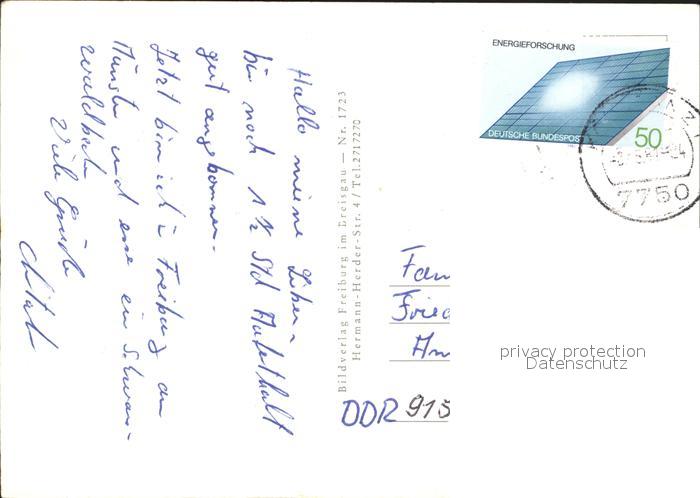 Hallo meine Lieben –
bin noch 1 ½ Std Aufenthalt
gut angekommen.
Jetzt bin ich in Freiburg am
Münster und esse ein Schwarz-
wald
Viele Grüße
Bildverlag Freiburg im Breisgau — Nr. 1723
Hermann-Herder-Str. 4 / Tel. 2717270
ENERGIEFORSCHUNG
DEUTSCHE BUNDESPOST
50
7750
Fam
Fried
Am
DDR 915
privacy protection
Datenschutz